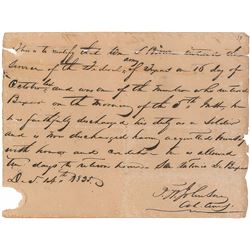 This is to certify that Wm S Brown entered the
Service of the Federal army of Texas on 16 day of
October and was one of the number who entered
Bexar on the morning of the 5th
he is faithfully discharged his duty as a Soldier
and is now discharged having acquitted himself
with honor and credit he is allowed
ten days to return home San Antonio de Bexar
D. 14th 1835.
F W Johnson
Col Comg